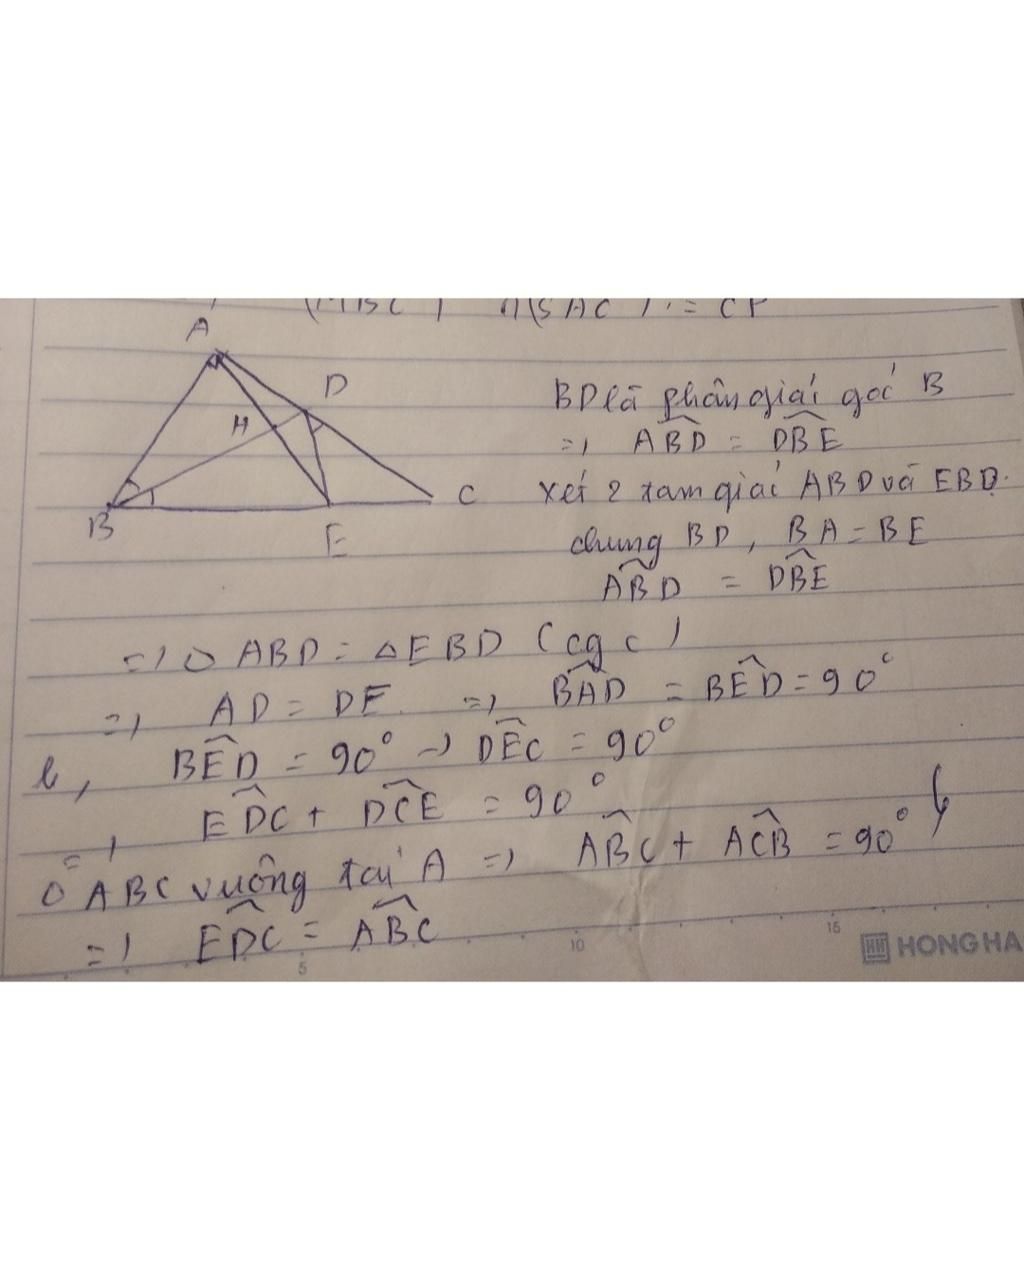 A
D
H
B
E
C
BD là phân giái góc B
=> ABD̂ = DBÊ
Xét 2 tam giái ABD và EBD.
chung BD, BA = BE
AB̂D = DB̂E
=> △ ABD = △EBD (cgc)
=> AD = DE. => BÂD = BÊD = 90°
b, BÊD = 90° -> DÊC = 90°
=> ED̂C + DĈE = 90°
△ ABC vuông tại A => AB̂C + AĈB = 90°
=> ED̂C = AB̂C
5 10 15
HONG HA